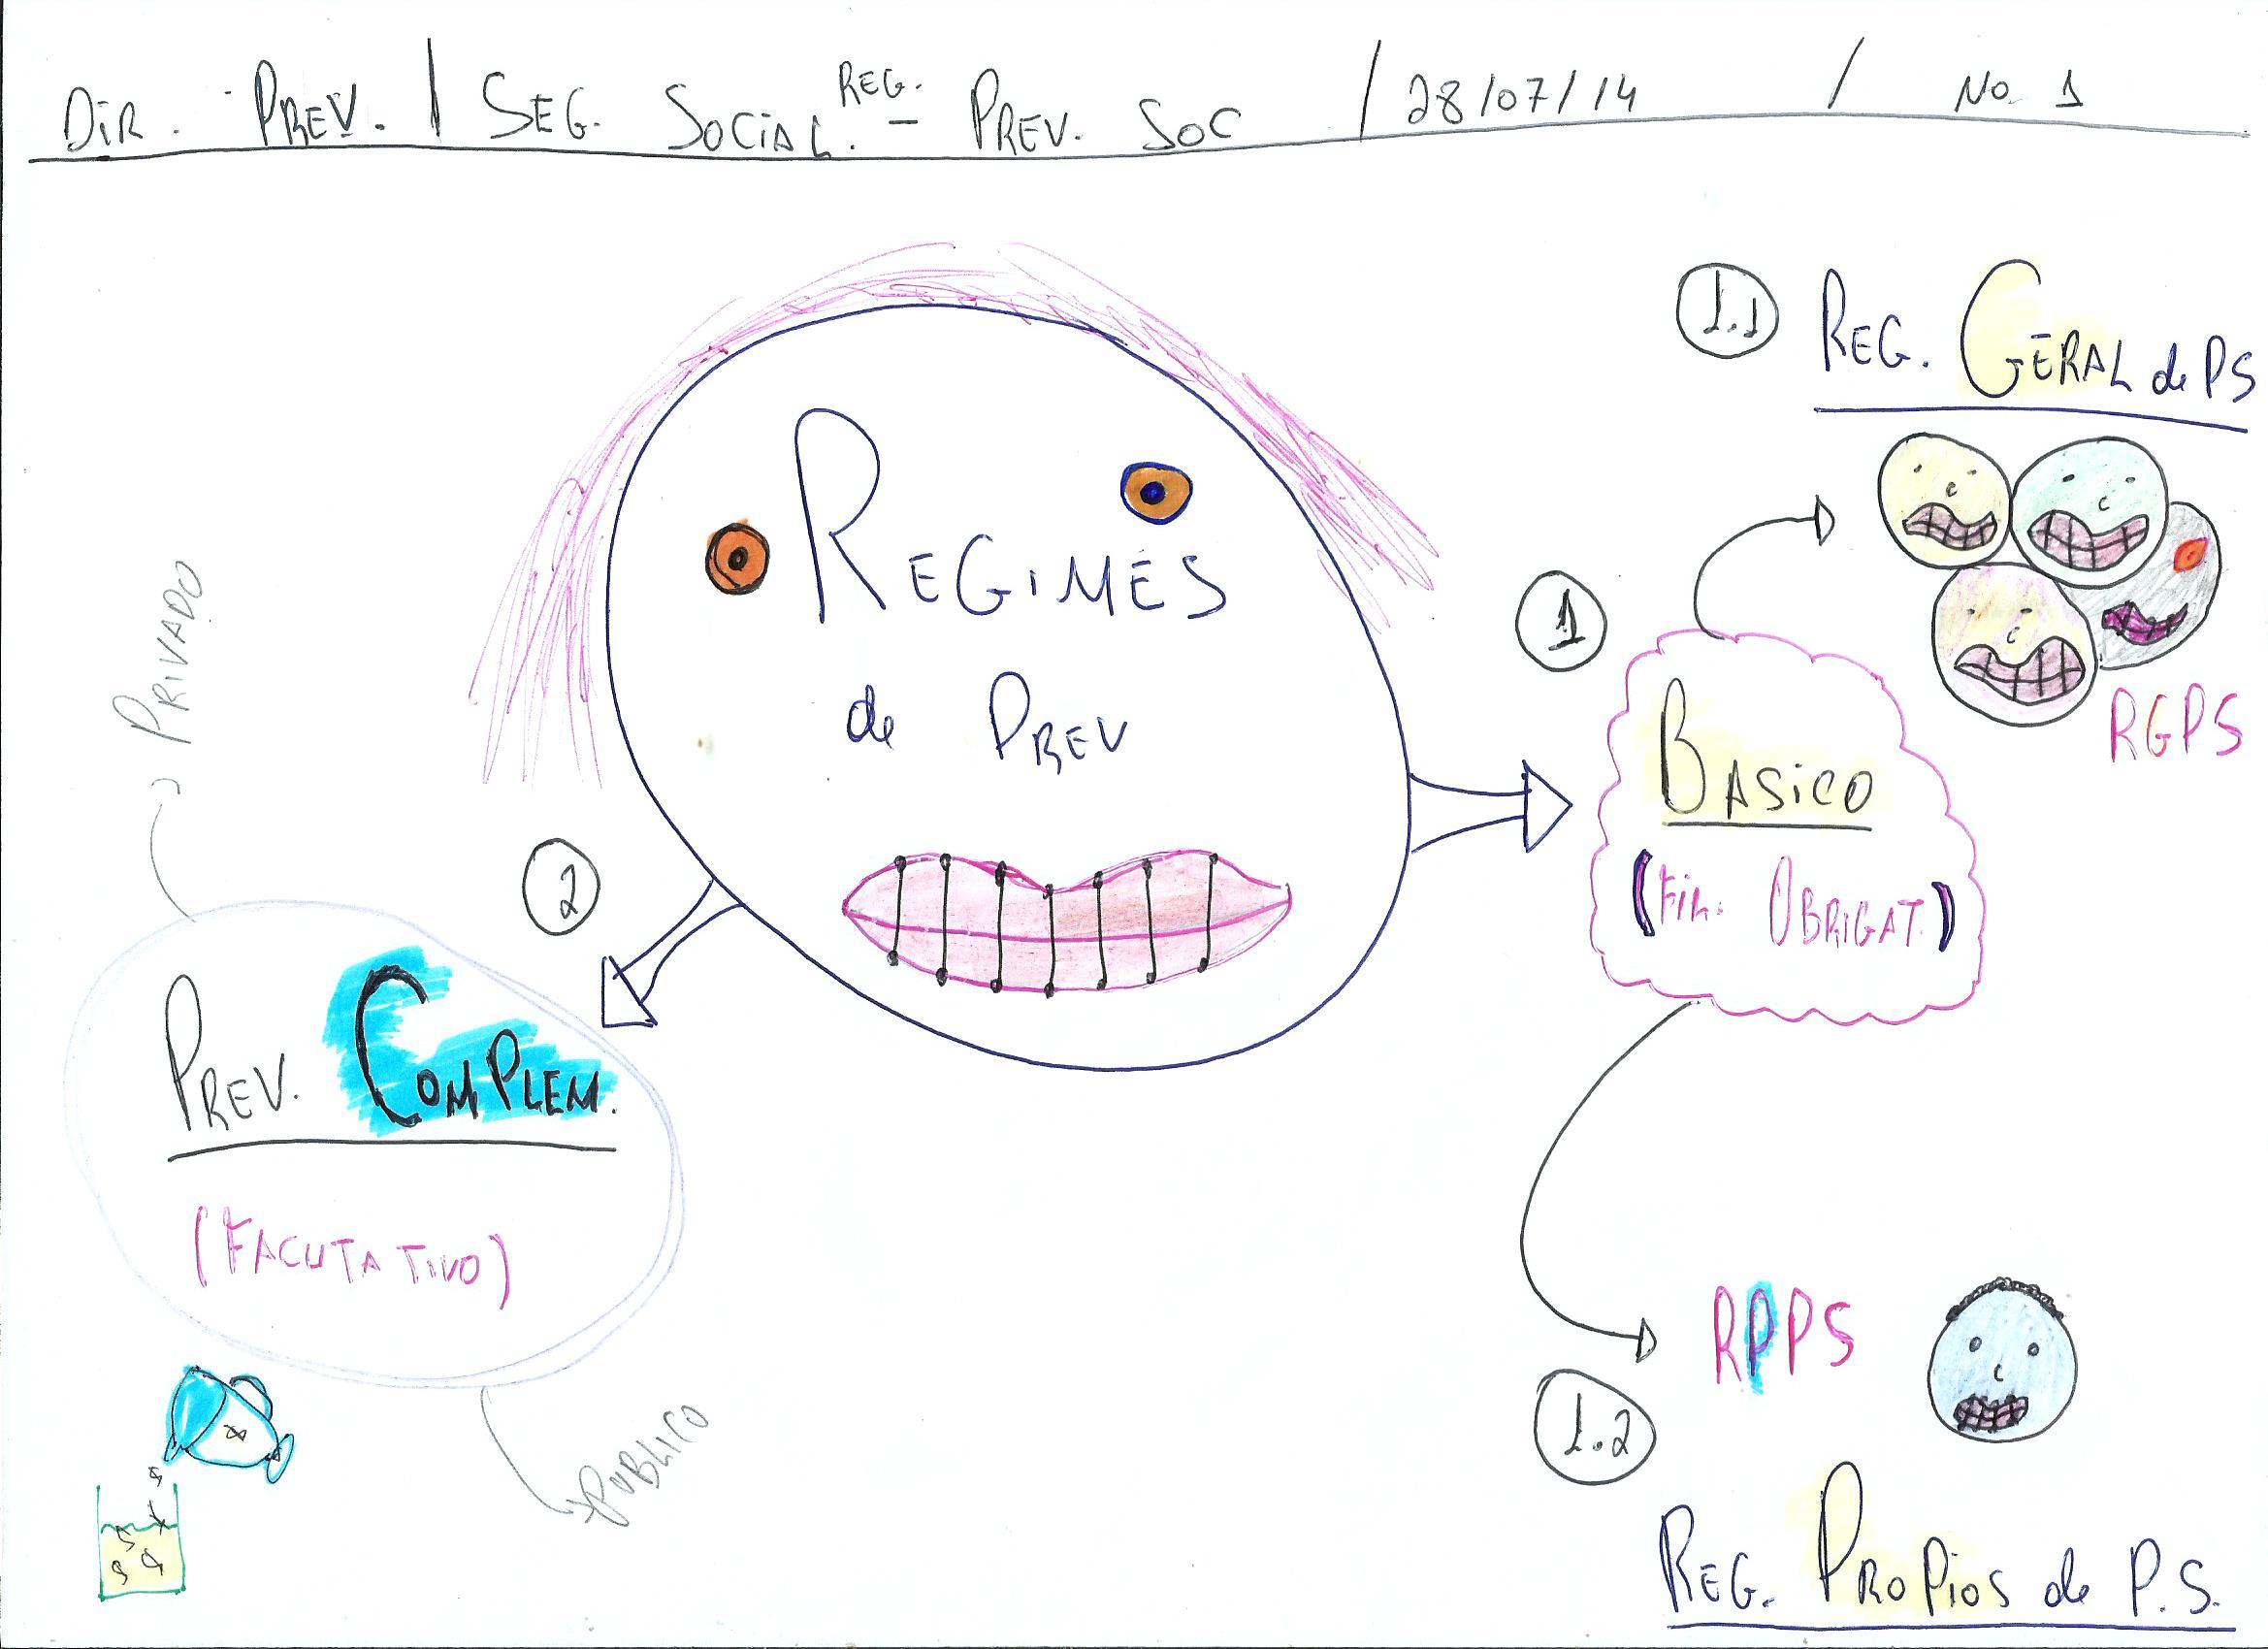 DIR. PREV. / SEG. SOCIAL. REG. - PREV. SOC / 28/07/14 / No 1
REGIMES
de PREV
1
BASICO
(Fil. OBRIGAT.)
1.1 REG. GERAL de PS
RGPS
1.2
RPPS
REG. PROPIOS de P.S.
2
PREV. COMPLEM.
(FACUTATIVO)
PRIVADO
PUBLICO